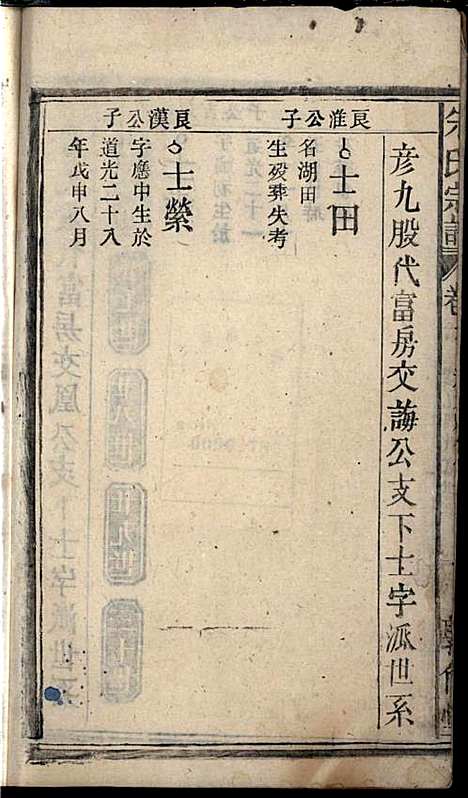 宗譜
卷
彦九股代富房文誨公支下士字派世系
良淮公子
士田
名湖田
生歿葬失考
良漢公子
士縈
字應中生於
道光二十八
年戊申八月